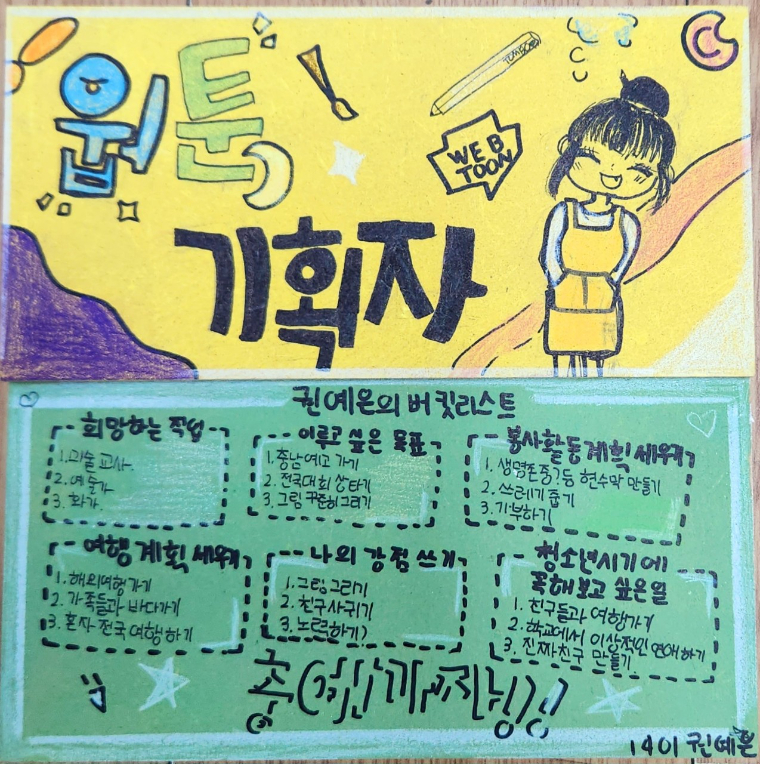 웹툰
TOMBOW
WEB
TOON
기획자
권예온의 버킷리스트
희망하는 직업
1. 미술 교사
2. 예술가
3. 화가
이루고 싶은 목표
1. 충남여고 가기
2. 전국대회 상타기
3. 그림 꾸준히 그리기
봉사활동계획 세우기
1. 생명존중 등 현수막 만들기
2. 쓰레기 줍기
3. 기부하기
여행 계획 세우기
1. 해외여행가기
2. 가족들과 바다가기
3. 혼자 전국 여행하기
나의 강점 쓰기
1. 그림 그리기
2. 친구사귀기
3. 노력하기
청소년시기에
꼭해보고 싶은일
1. 친구들과 여행가기
2. 학교에서 이상적인 연애하기
3. 진짜친구 만들기
1401 권예온